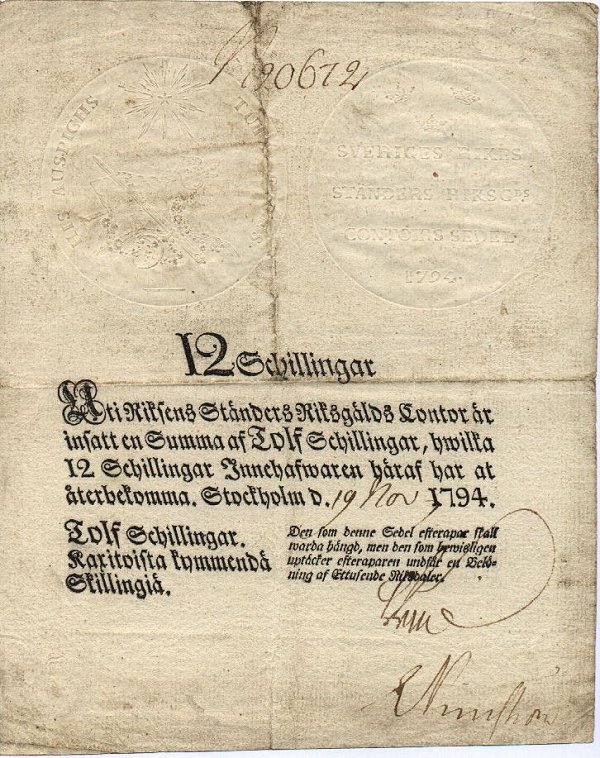 No 20672
HIS AUSPICIIS
SVERIGES RIKES
STÄNDERS RIKSG:S
CONTOIRS SEDEL
1794
12 Schillingar
Uti Riksens Ständers Riksgälds Contor är
insatt en Summa af Tolf Schillingar, hwilka
12 Schillingar Innehafwaren häraf har at
återbekomma. Stockholm d. 19 Nov 1794.
Tolf Schillingar.
Kaxitoista kymmendä
Skillingiä.
Den som denne Sedel efterapar skall
warda hängd, men den som bewisligen
uptäcker efteraparen undfår en Belö-
ning af Ettusende Riksdaler.